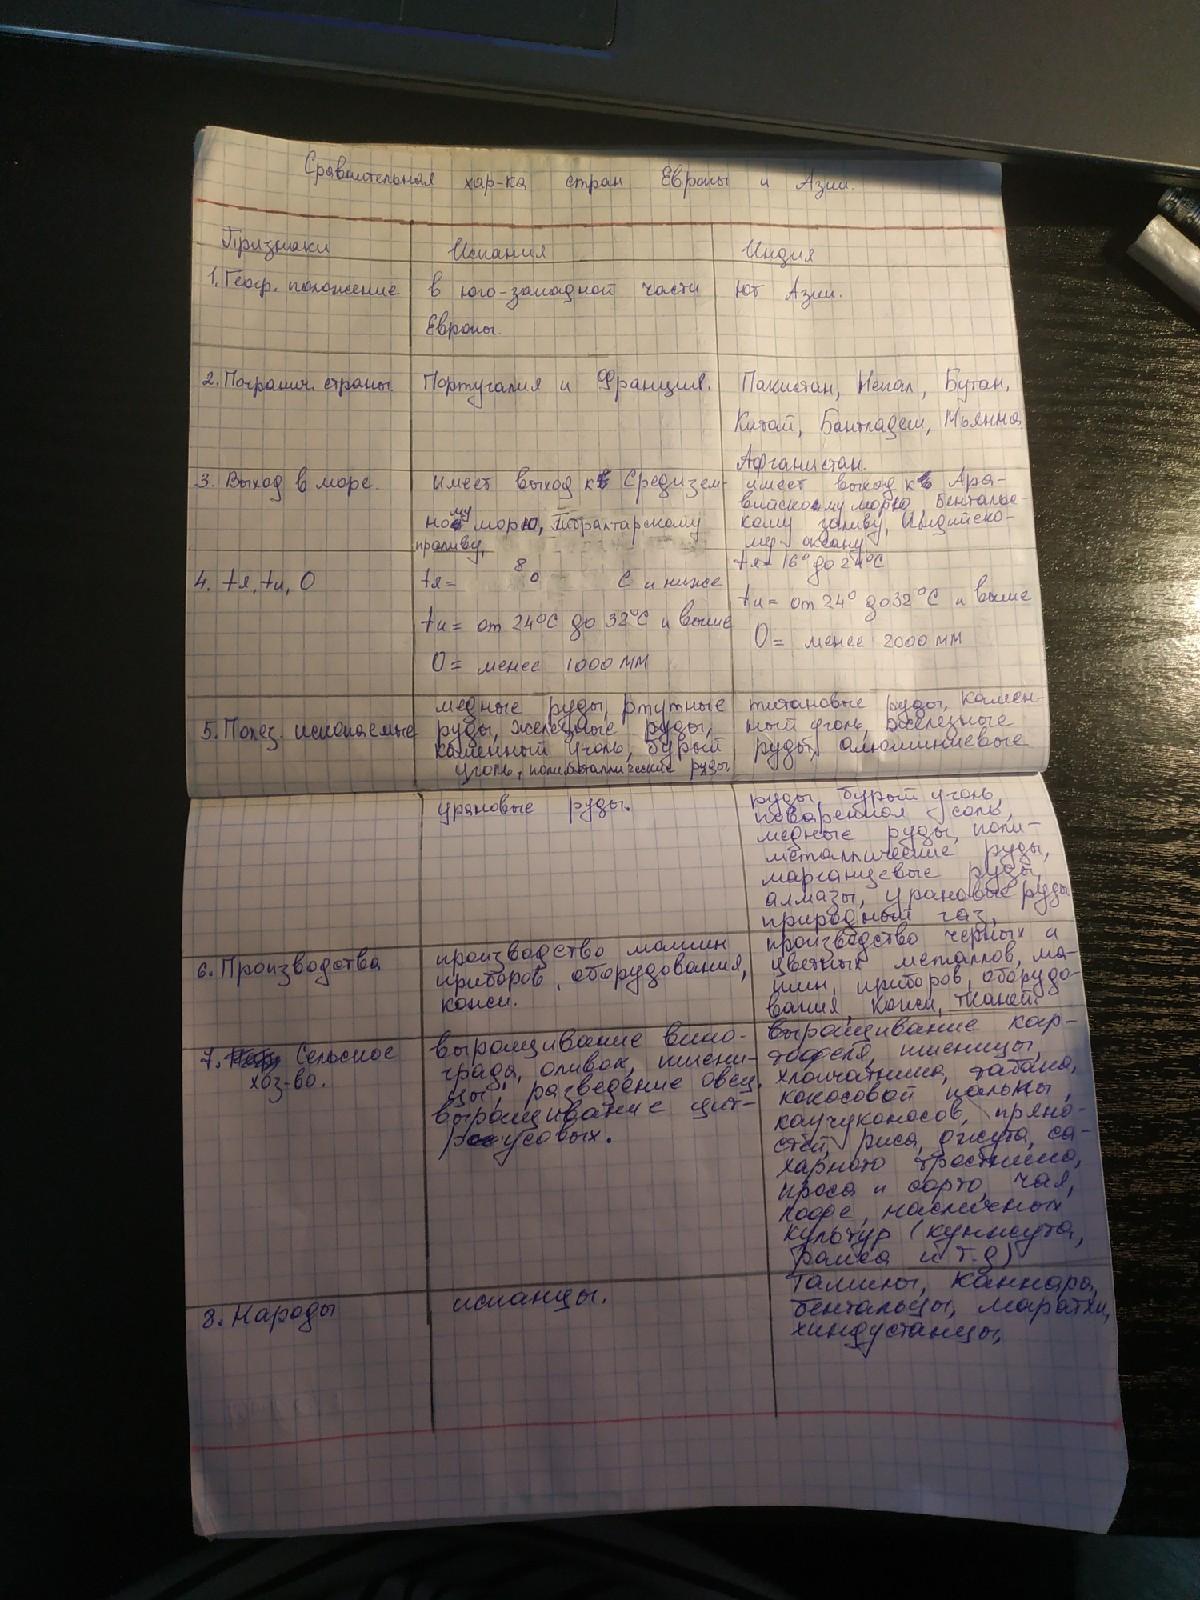 Сравнительная хар-ка стран Европы и Азии.
Признаки
Испания
Индия
1. Геогр. положение
в юго-западной части
Европы.
юг Азии.
2. Погранич. страны
Португалия и Франция.
Пакистан, Непал, Бутан,
Китай, Бангладеш, Мьянма
Афганистан.
3. Выход в море.
имеет выход к Средизем-
ному морю, Гибралтарскому
проливу,
имеет выход к Ара-
вийскому морю, Бенгальс-
кому заливу, Индийско-
му океану
4. tя, tи, О
tя= 8° С и ниже
tи= от 24°С до 32°С и выше
О= менее 1000 мм
tя= 16° до 24°С
tи= от 24° до 32°С и выше
О= менее 2000 мм
5. Полез. ископаемые
медные руды, ртутные
руды, железные руды,
каменный уголь, бурый
уголь, полиметаллические руды
урановые руды.
титановые руды, камен-
ный уголь, железные
руды, алюминиевые
руды, бурый уголь,
поваренная соль,
медные руды, поли-
металлические руды,
марганцевые руды,
алмазы, урановые руды
природный газ,
6. Производства
производство машин
приборов, оборудования,
кожи.
производство черных и
цветных металлов, ма-
шин, приборов, оборудо-
вания, кожи, тканей
7. Сельское
хоз-во.
выращивание вино-
града, оливок, пшени-
цы, разведение овец,
выращивание цит-
русовых.
выращивание кар-
тофеля, пшеницы,
хлопчатника, табака,
кокосовой пальмы,
каучуконосов, пряно-
стей, риса, джута, са-
харного тростника,
проса и сорго, чая,
кофе, масличных
культур (кунжута,
рапса и т.д)
8. Народы
испанцы.
Тамилы, каннара,
бенгальцы, маратхи,
хиндустанцы,